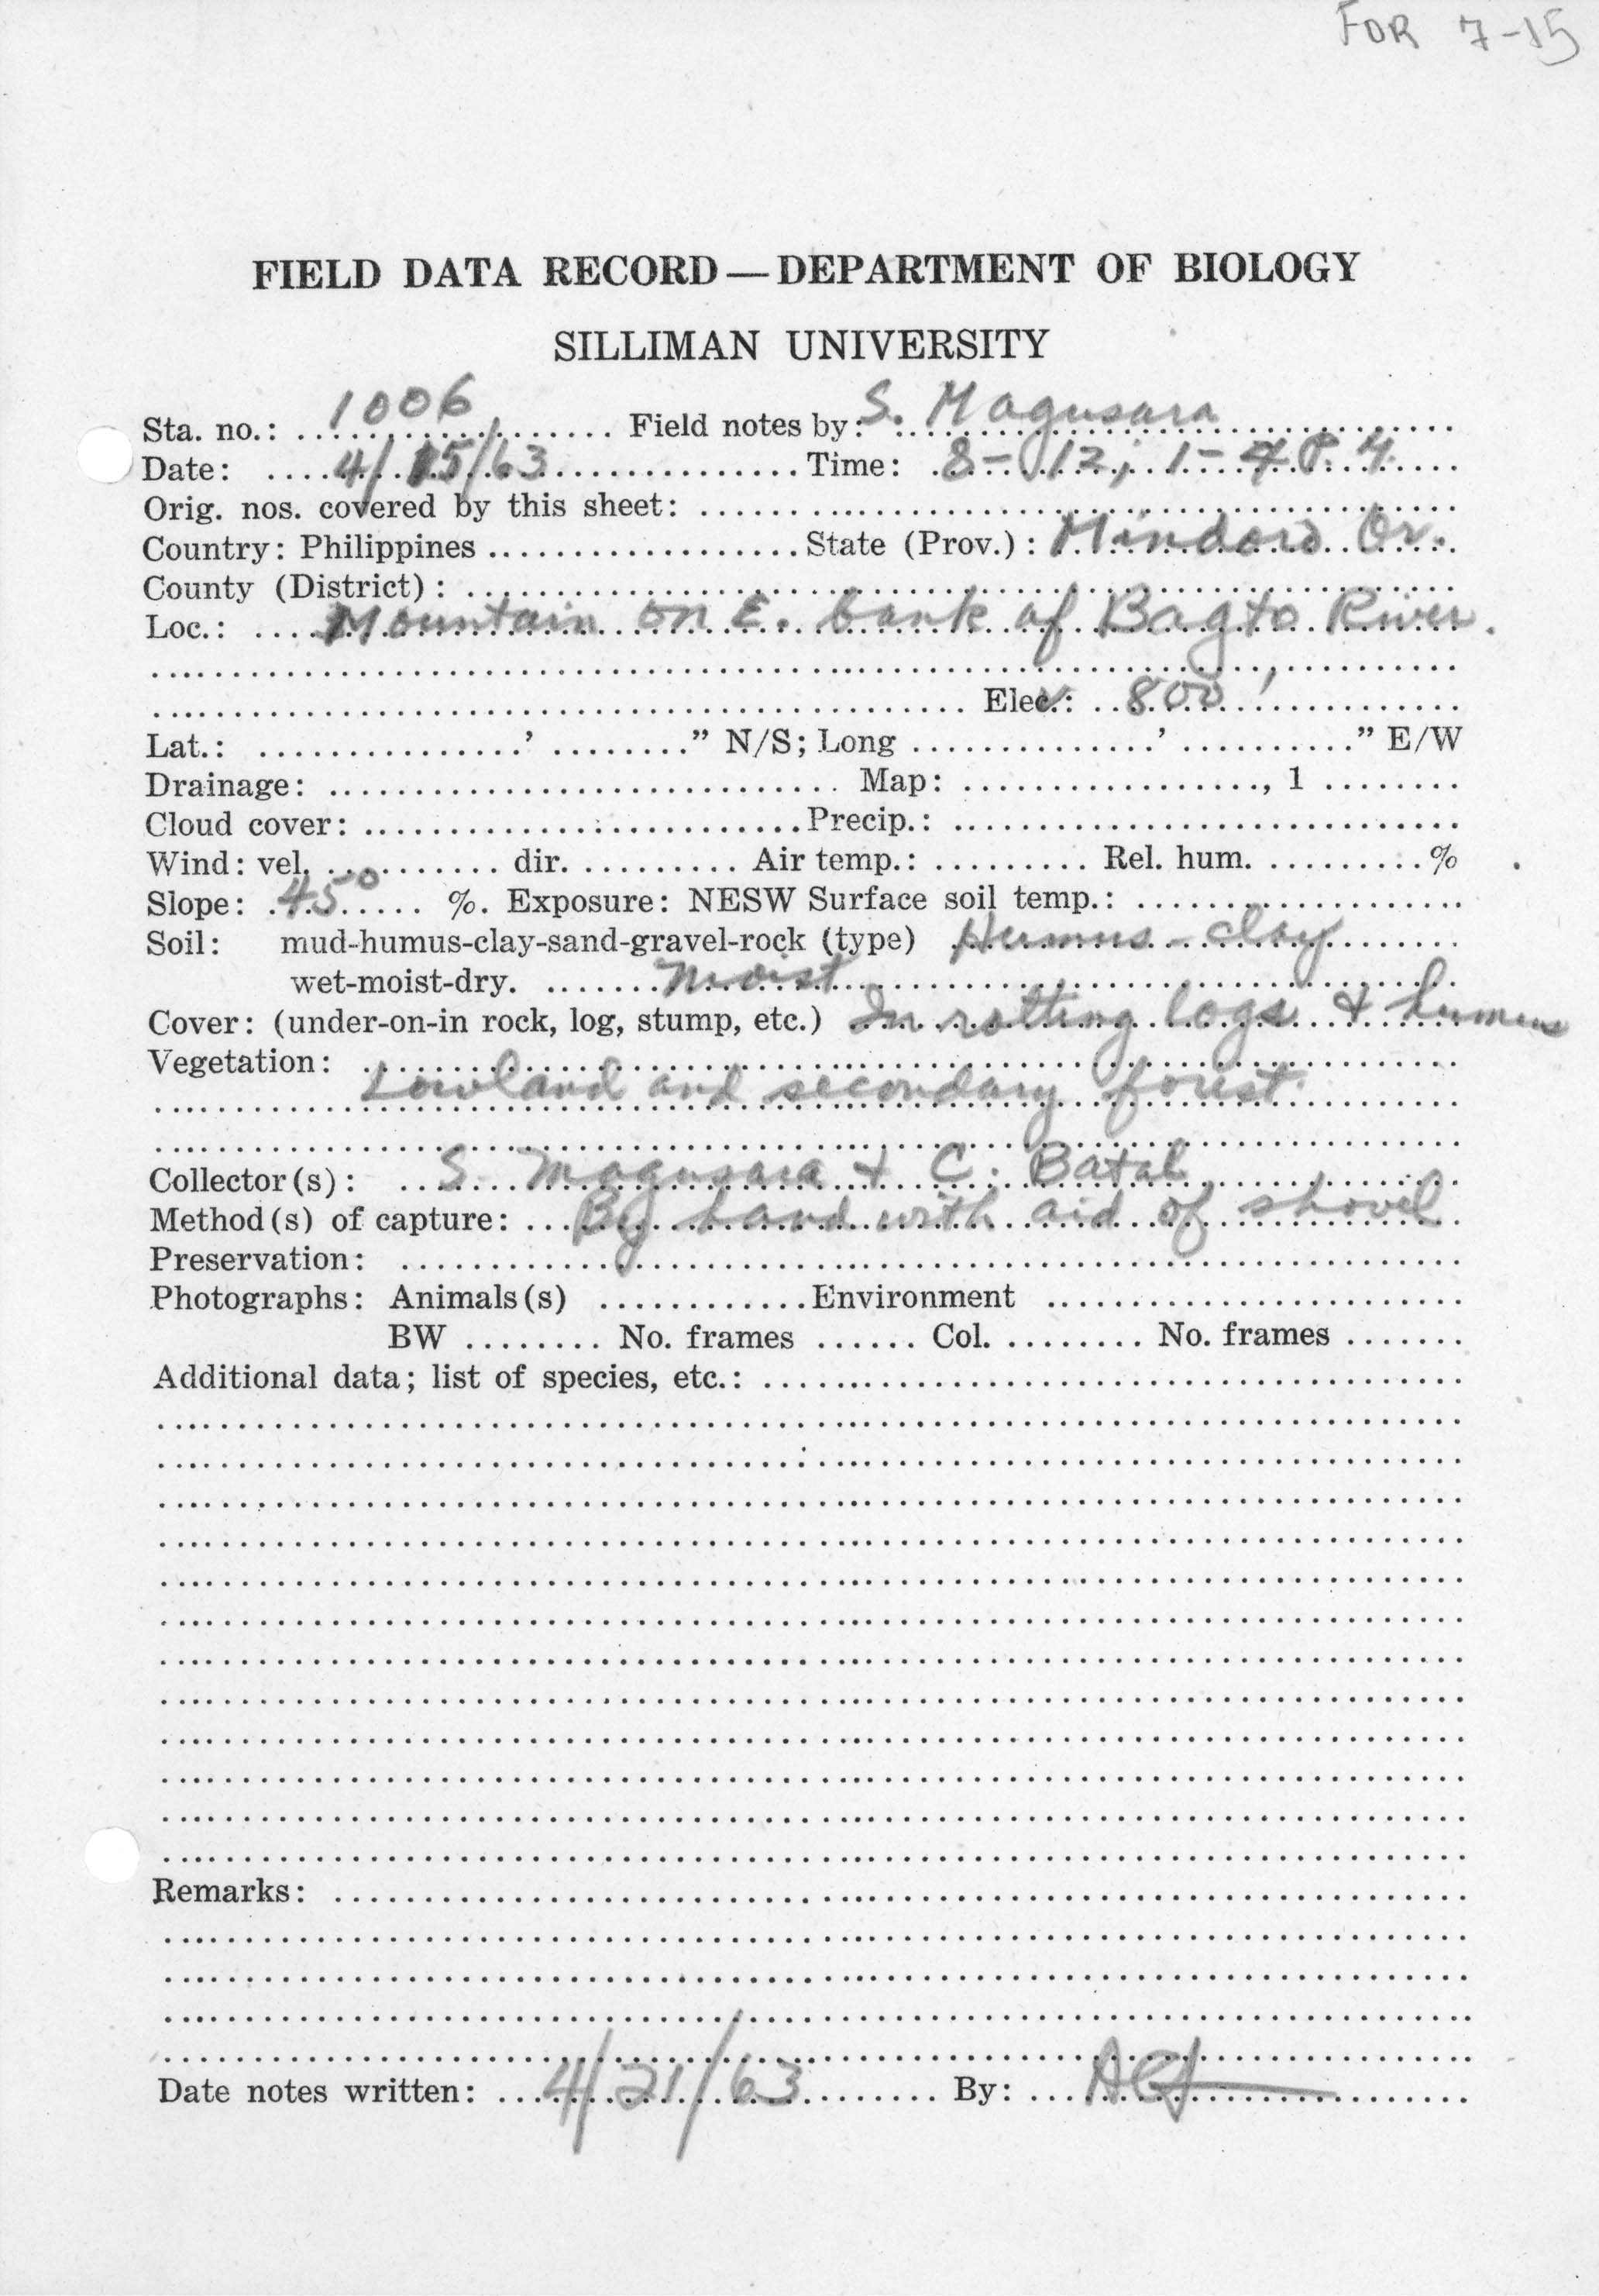 FOR 7-15
FIELD DATA RECORD—DEPARTMENT OF BIOLOGY
SILLIMAN UNIVERSITY
Sta. no.: 1006 Field notes by: S. Magusara
Date: 4/15/63 Time: 8-12; 1-4 P.M.
Orig. nos. covered by this sheet:
Country: Philippines State (Prov.): Mindoro Or.
County (District):
Loc.: Mountain on E. bank of Bagto River.
Elev.: 800'
Lat.: ' " N/S; Long ' " E/W
Drainage: Map: , 1
Cloud cover: Precip.:
Wind: vel. dir. Air temp.: Rel. hum. %
Slope: 45° %. Exposure: NESW Surface soil temp.:
Soil: mud-humus-clay-sand-gravel-rock (type) Humus-clay
wet-moist-dry. Moist
Cover: (under-on-in rock, log, stump, etc.) In rotting logs & humus
Vegetation:
Lowland and secondary forest.
Collector(s): S. Magusara & C. Batal
Method(s) of capture: By hand with aid of shovel
Preservation:
Photographs: Animals(s) Environment
BW No. frames Col. No. frames
Additional data; list of species, etc.:
Remarks:
Date notes written: 4/21/63 By: